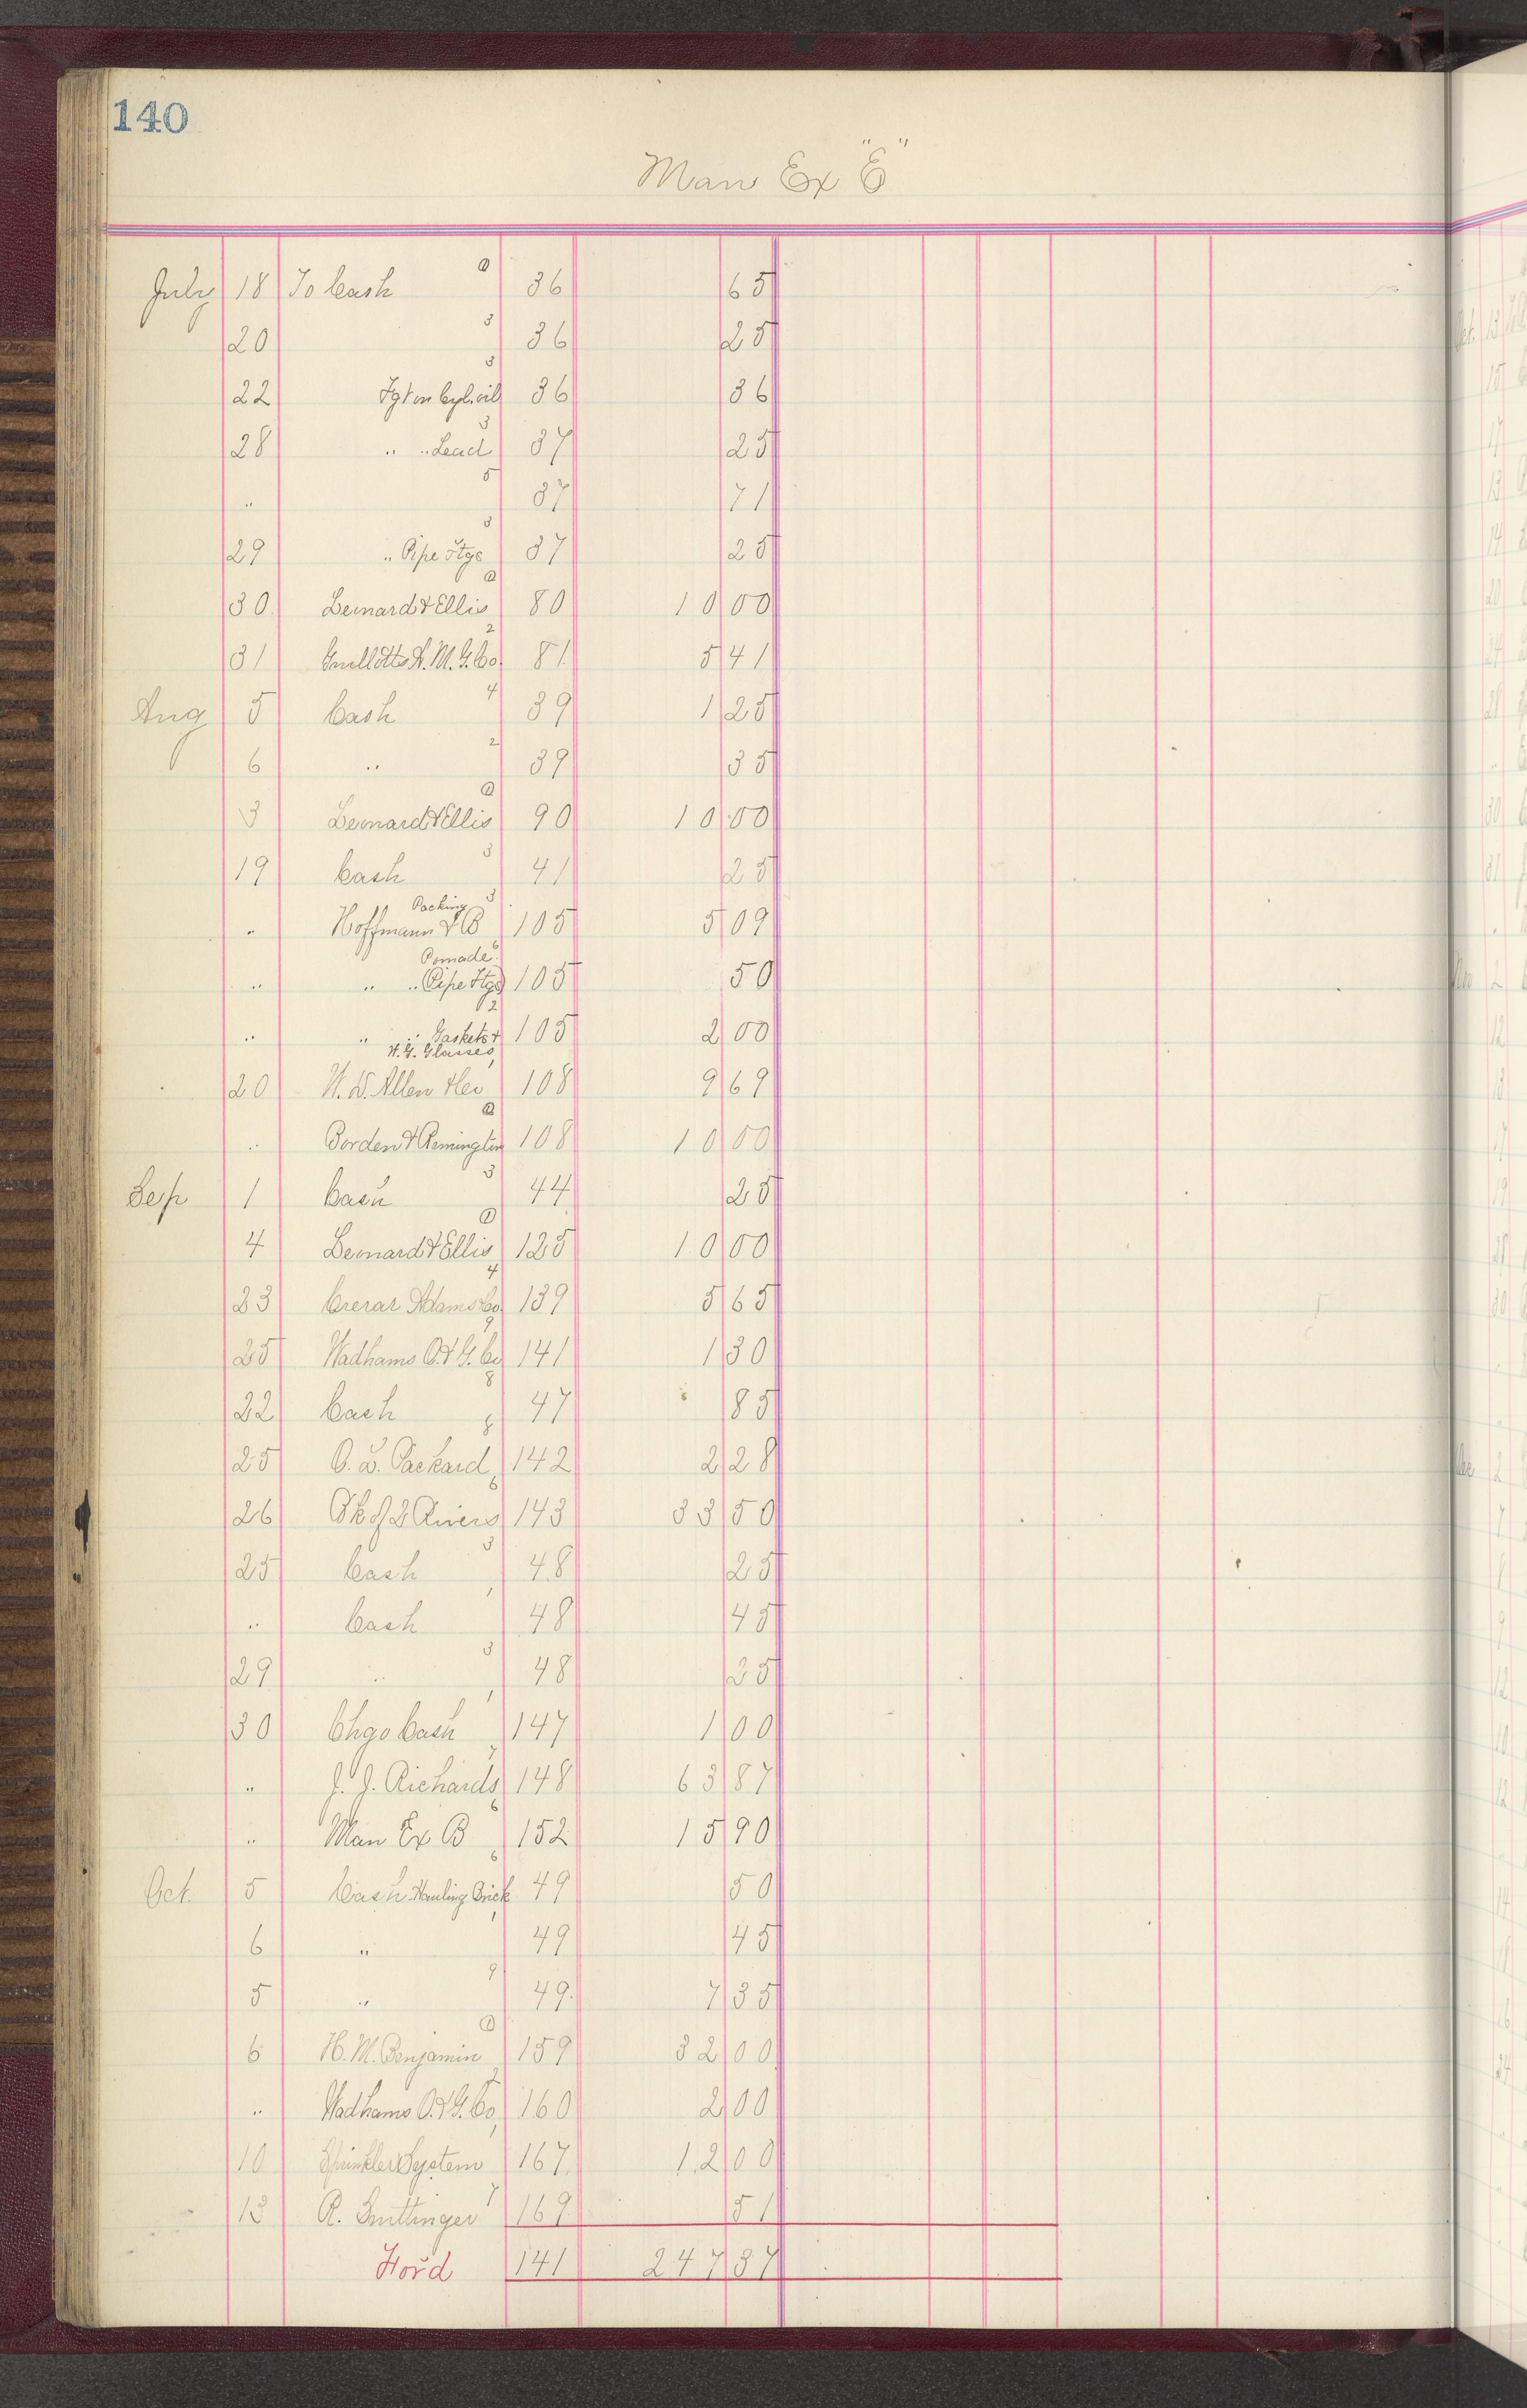 140
Man Ex "E"
July 18 To Cash @ 36 65
20 3 36 25
22 3 Fgt on Cyl. oil 36 36
28 3 " " Lead 37 25
" 5 37 71
29 3 " Pipe Ftgs 37 25
30 @ Leonard & Ellis 80 10 00
31 2 81 5 41
Aug 5 Cash 4 39 1 25
6 " 2 39 35
3 @ Leonard & Ellis 90 10 00
19 Cash 3 41 25
" Packing 3
Hoffmann & B 105 5 09
Pomade 6
" " " Pipe Ftgs 105 50
2
" " " Gaskets & 105 2 00
W. G. Glasses
20 W. D. Allen 108 9 69
" @ Borden & Remington 108 10 00
Sep 1 Cash 3 44 25
4 @ Leonard & Ellis 125 10 00
23 4 Crerar Adams Co 139 5 65
25 9 Wadhams O. & G. Co 141 1 30
22 Cash 8 47 85
25 8 O. L. Packard 142 2 28
26 6 Bk of 2 Rivers 143 33 50
25 Cash 3 48 25
" Cash 1 48 45
29 " 3 48 25
30 Chgo Cash 1 147 1 00
" J. J. Richards 148 63 87
" Man Ex B 6 152 15 90
Oct. 5 6 Cash Hauling Brick 49 50
6 " 1 49 45
5 " 9 49 7 35
6 @ H. M. Benjamin 159 32 00
" Wadhams O. & G. Co 160 2 00
10 Sprinkler System 167 12 00
13 R. Suettinger 7 169 51
Ford 141 247 37